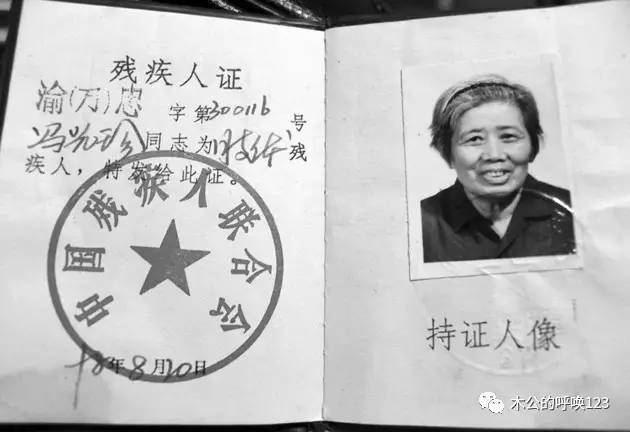 残疾人证
渝(万)忠 字第30016号
冯 珍同志为肢体残
疾人，特发给此证。
中国残疾人联合会
年8月20日
持证人像
木公的呼唤123